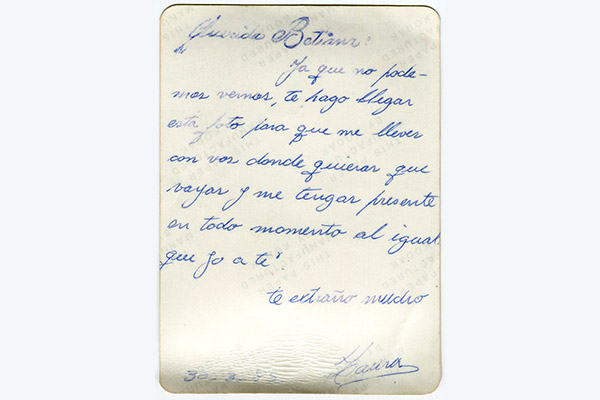 Querida Betiana:
Ya que no pode-
mos vernos, te hago llegar
esta foto para que me lleves
con vos donde quieras que
vayas y me tengas presente
en todo momento al igual
que yo a te".
te extraño mucho
Laura